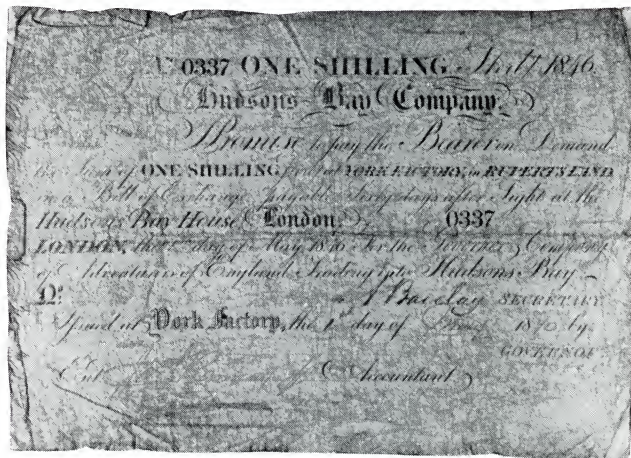 0337 ONE SHILLING 1846
Hudsons Bay Company.
I Promise to pay the Bearer on Demand
the Sum of ONE SHILLING at YORK FACTORY, in RUPERTS LAND
in a Bill of Exchange payable Sixty days after Sight at the
Hudsons Bay House London. 0337
LONDON, the day of May for the Governor & Company
of Adventurers of England Trading into Hudsons Bay
Barclay SECRETARY
Issued at York Factory, the day of by
GOVERNOR
Ent Accountant